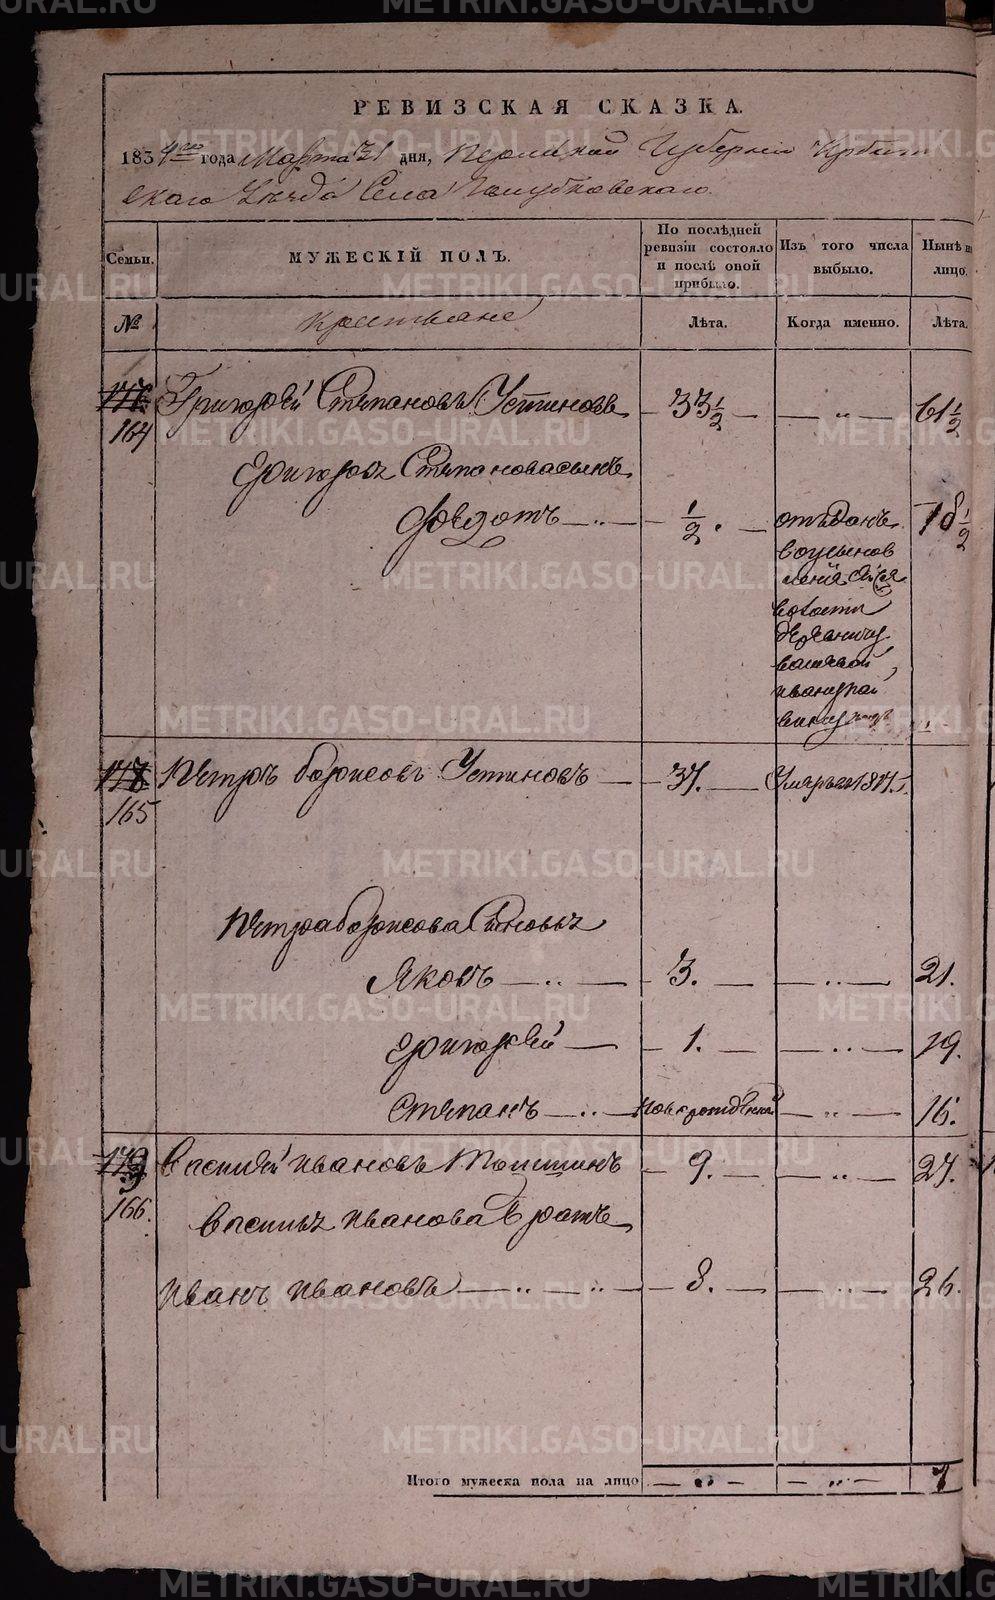 РЕВИЗСКАЯ СКАЗКА.
1834го года Марта 31 дня, Пермской Губернiи Ирбит
скаго Уезда Села Голубковскаго
Семьи.
МУЖЕСКІЙ ПОЛЪ.
По послѣдней ревизіи состояло и послѣ оной прибыло.
Изъ того числа выбыло.
Нынѣ на лицо.
№
Крестьяне
Лѣта.
Когда именно.
Лѣта.
164
Григорей Степановъ Устиновъ
33 1/2
61 1/2
Григорья Степанова сынъ
Федотъ
1/2.
отъданъ
волости
18 1/2
165
Петръ Борисовъ Устиновъ
37.
Умре въ 1817.
Петра Борисова Сыновья
Яковъ
3.
21.
Григорей
1.
19.
Степанъ
новорожденной
16.
179
166.
Василей Ивановъ Топшинъ
9.
27.
Василья Иванова Братъ
Иванъ Ивановъ
8.
26.
Итого мужеска пола на лицо
7
METRIKI.GASO-URAL.RU